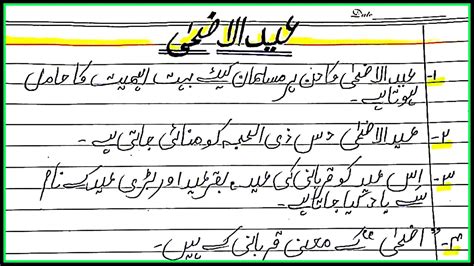 Date
عید الاضحیٰ
۱- عید الاضحیٰ کا دن ہر مسلمان کیلئے بہت اہمیت کا حامل
ہوتا ہے۔
۲- عید الاضحیٰ دس ذی الحجہ کو منائی جاتی ہے۔
۳- اس عید کو قربانی کی عید، بقر عید اور بڑی عید کے نام
سے یاد کیا جاتا ہے۔
۴- "اضحیٰ" کے معنی قربانی کے ہیں۔